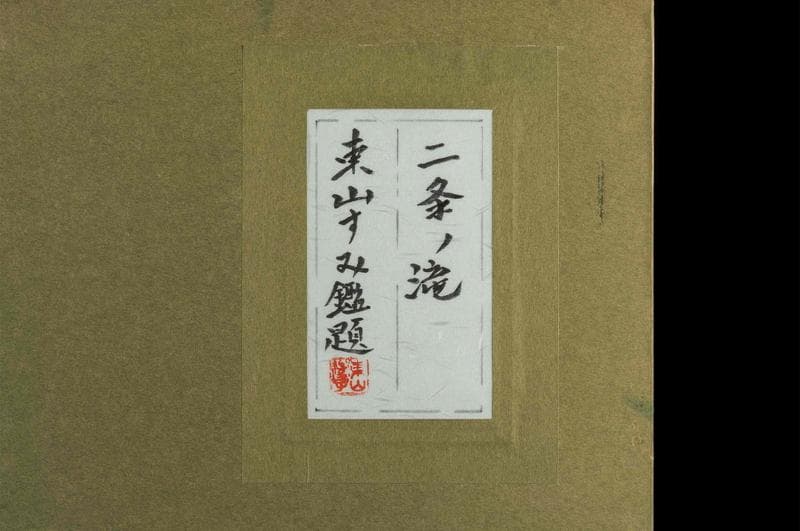 二条ノ滝
東山すみ鑑題